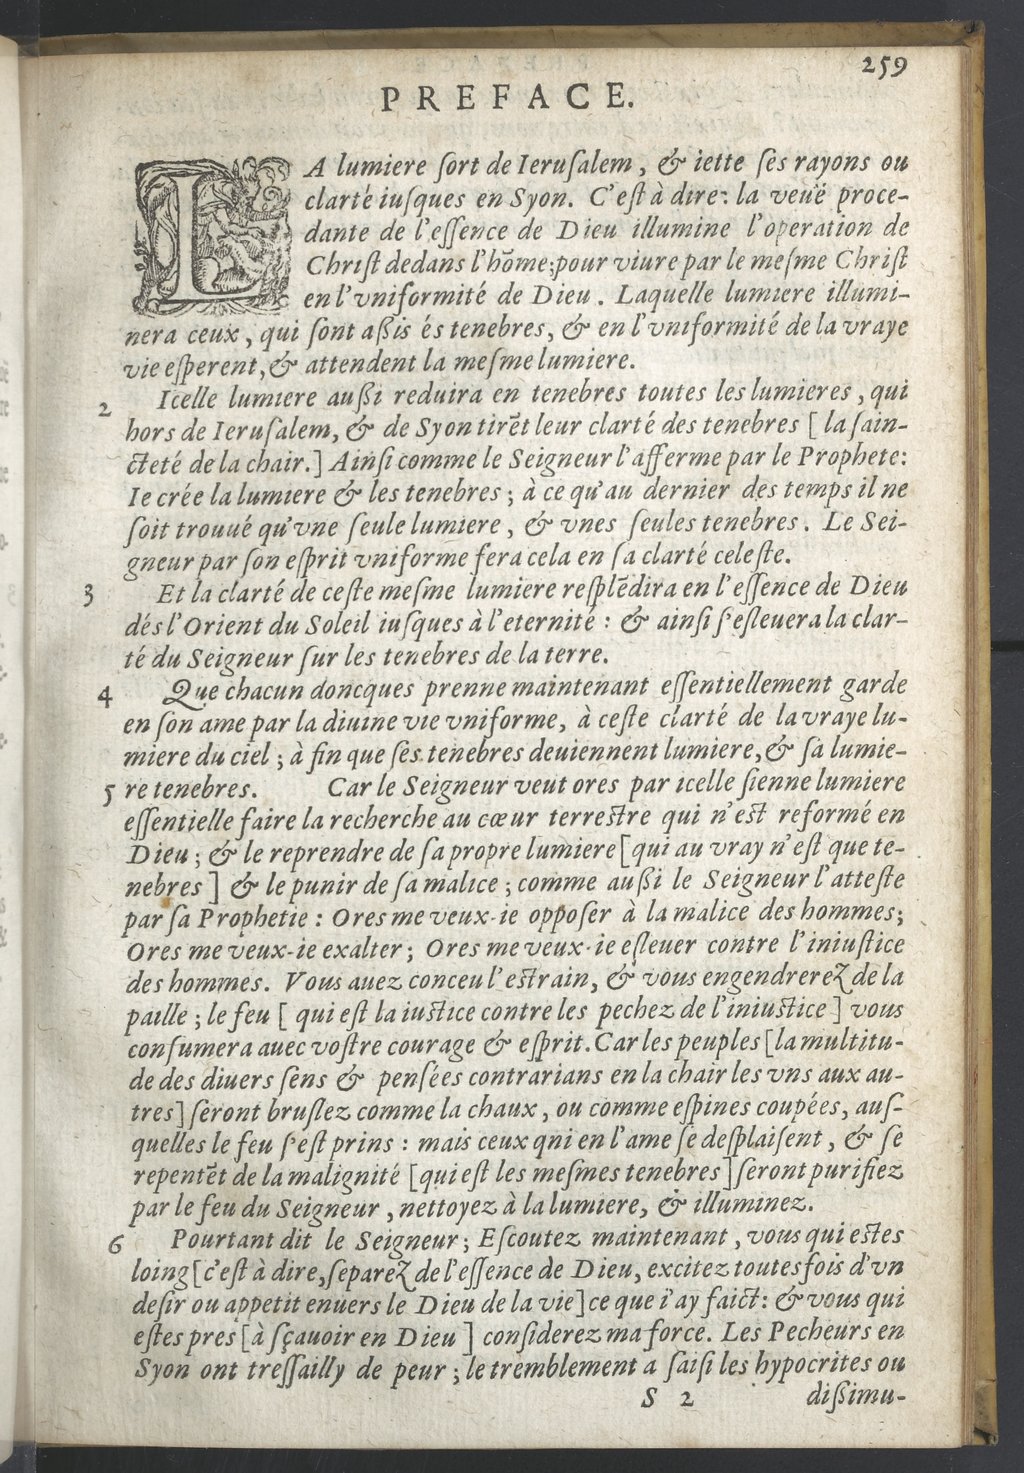 259
PREFACE.
LA lumiere ſort de Ieruſalem, & iette ſes rayons ou
clarté iuſques en Syon. C'eſt à dire: la veuë proce-
dante de l'eſſence de Dieu illumine l'operation de
Chriſt dedans l'hõme; pour viure par le meſme Chriſt
en l'vniformité de Dieu. Laquelle lumiere illumi-
nera ceux, qui ſont aßis és tenebres, & en l'vniformité de la vraye
vie eſperent, & attendent la meſme lumiere.
2 Icelle lumiere außi reduira en tenebres toutes les lumieres, qui
hors de Ieruſalem, & de Syon tirẽt leur clarté des tenebres [ la ſain-
cteté de la chair.] Ainſi comme le Seigneur l'afferme par le Prophete:
Ie crée la lumiere & les tenebres; à ce qu'au dernier des temps il ne
ſoit trouué qu'vne ſeule lumiere, & vnes ſeules tenebres. Le Sei-
gneur par ſon eſprit vniforme fera cela en ſa clarté celeſte.
3 Et la clarté de ceſte meſme lumiere reſplẽdira en l'eſſence de Dieu
dés l'Orient du Soleil iuſques à l'eternité: & ainſi s'eſleuera la clar-
té du Seigneur ſur les tenebres de la terre.
4 Que chacun doncques prenne maintenant eſſentiellement garde
en ſon ame par la diuine vie vniforme, à ceſte clarté de la vraye lu-
miere du ciel; à fin que ſes tenebres deuiennent lumiere, & ſa lumie-
5 re tenebres. Car le Seigneur veut ores par icelle ſienne lumiere
eſſentielle faire la recherche au cœur terreſtre qui n'eſt reformé en
Dieu; & le reprendre de ſa propre lumiere [qui au vray n'eſt que te-
nebres ] & le punir de ſa malice; comme außi le Seigneur l'atteſte
par ſa Prophetie: Ores me veux-ie oppoſer à la malice des hommes;
Ores me veux-ie exalter; Ores me veux-ie eſleuer contre l'iniuſtice
des hommes. Vous auez conceu l'eſtrain, & vous engendrerez de la
paille; le feu [ qui eſt la iuſtice contre les pechez de l'iniuſtice ] vous
conſumera auec voſtre courage & eſprit. Car les peuples [la multitu-
de des diuers ſens & penſées contrarians en la chair les vns aux au-
tres] ſeront bruſlez comme la chaux, ou comme eſpines coupées, auſ-
quelles le feu s'eſt prins: mais ceux qni en l'ame ſe deſplaiſent, & ſe
repentẽt de la malignité [qui eſt les meſmes tenebres] ſeront purifiez
par le feu du Seigneur, nettoyez à la lumiere, & illuminez.
6 Pourtant dit le Seigneur; Eſcoutez maintenant, vous qui eſtes
loing [c'eſt à dire, ſeparez de l'eſſence de Dieu, excitez toutesfois d'vn
deſir ou appetit enuers le Dieu de la vie] ce que i'ay faict: & vous qui
eſtes pres [à ſçauoir en Dieu ] conſiderez ma force. Les Pecheurs en
Syon ont treſſailly de peur; le tremblement a ſaiſi les hypocrites ou
S 2 dißimu-